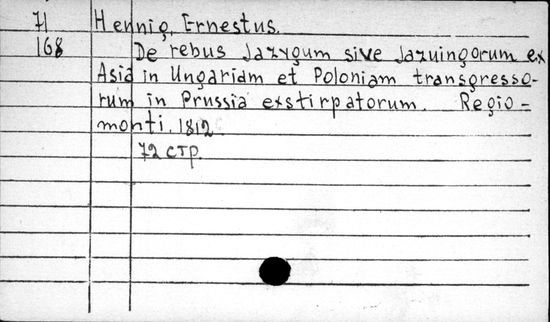 71 Hennig, Ernestus.
168 De rebus Jazygum sive Jazuingorum ex
Asia in Ungariam et Poloniam transgresso-
rum in Prussia exstirpatorum. Regio-
monti, 1812.
72 стр.